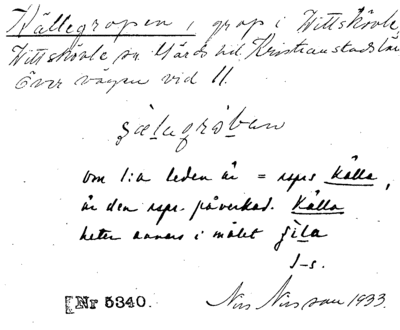 Källegropen, grop i Vittskövle,
Vittskövle sn Gärds hd. Kristianstads län
Över vägen vid 11.
om 1:a leden är = rspr Källa,
är den rspr. påverkad. Källa
heter annars i målet
J-s.
[Nr 5340. Nils Nilsson 1933.